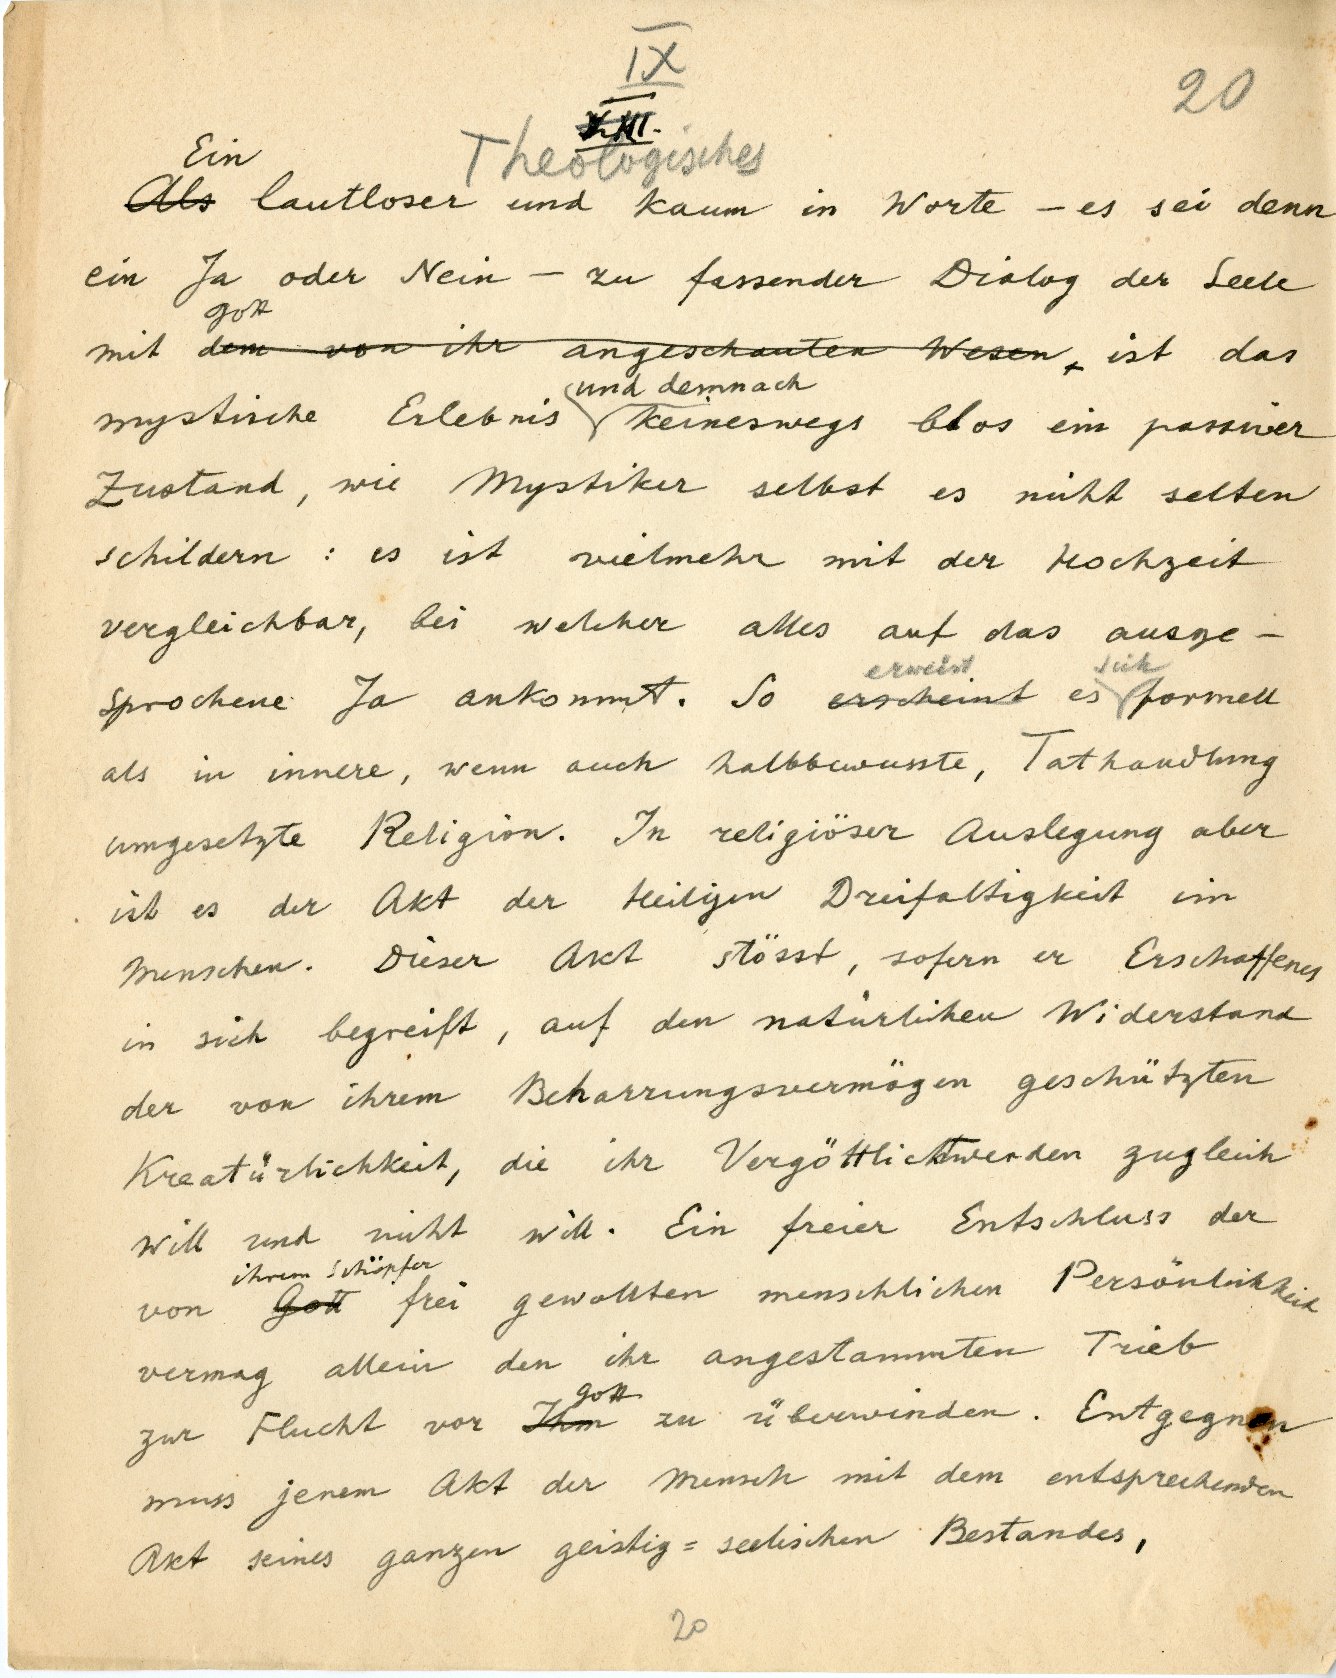 IX
20
VIII.
Theologisches
Ein
Als lautloser und kaum in Worte – es sei denn
ein Ja oder Nein – zu fassender Dialog der Seele
Gott
mit dem von ihr angeschauten Wesen, ist das
und demnach
mystische Erlebnis keineswegs blos ein passiver
Zustand, wie Mystiker selbst es nicht selten
schildern: es ist vielmehr mit der Hochzeit
vergleichbar, bei welcher alles auf das ausge-
erweist sich
sprochene Ja ankommt. So erscheint es formell
als in innere, wenn auch halbbewusste, Tathandlung
umgesetzte Religion. In religiöser Auslegung aber
ist es der Akt der Heiligen Dreifaltigkeit im
Menschen. Dieser Akt stösst, sofern er Erschaffenes
in sich begreift, auf den natürlichen Widerstand
der von ihrem Beharrungsvermögen geschützten
Kreatürlichkeit, die ihr Vergöttlichtwerden zugleich
will und nicht will. Ein freier Entschluss der
ihrem Schöpfer
von Gott frei gewollten menschlichen Persönlichkeit
vermag allein den ihr angestammten Trieb
Gott
zur Flucht vor Ihm zu überwinden. Entgegnen
muss jenem Akt der Mensch mit dem entsprechenden
Akt seines ganzen geistig=seelischen Bestandes,
20